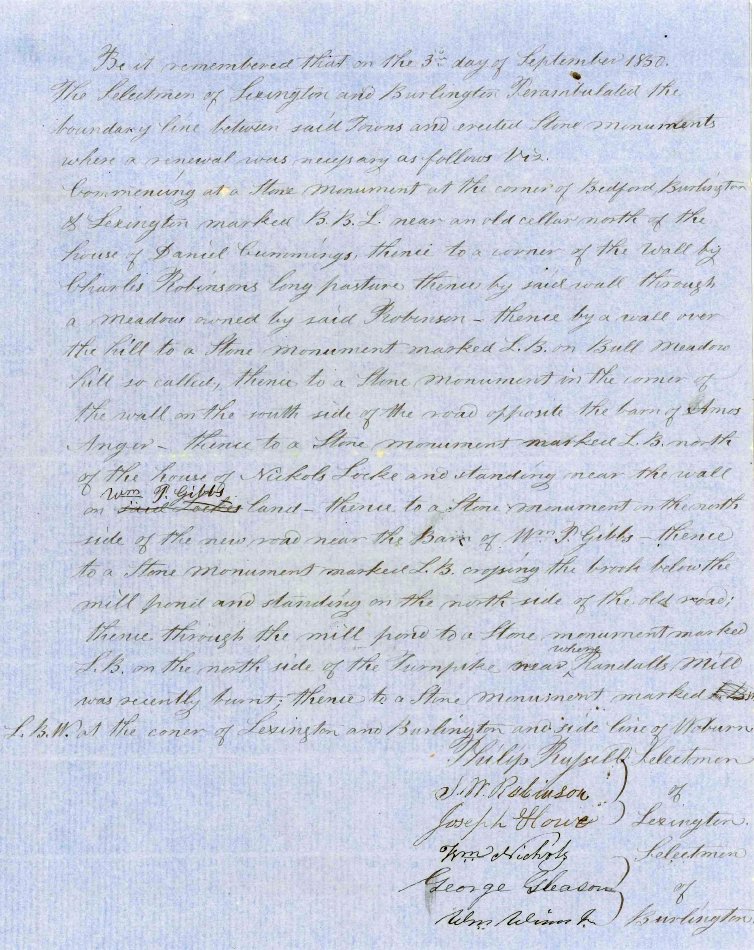 Be it remembered that on the 3d day of September 1850.
The Selectmen of Lexington and Burlington Perambulated the
boundary line between said Towns and erected Stone monuments
where a renewal was necessary as follows Viz.
Commencing at a Stone Monument at the corner of Bedford Burlington
& Lexington marked B.B.L. near an old cellar north of the
house of Daniel Cummings, thence to a corner of the wall by
Charles Robinsons long pasture thence by said wall through
a meadow owned by said Robinson – thence by a wall over
the hill to a Stone monument marked L.B. on Bull Meadow
hill so called, thence to a Stone Monument in the corner of
the wall on the south side of the road opposite the barn of Amos
Anger – thence to a Stone monument marked L.B. north
of the house of Nickols Locke and standing near the wall
Wm P. Gibbs
on said Lockes land – thence to a Stone monument on the north
side of the new road near the Barn of Wm P. Gibbs – thence
to a Stone Monument marked L.B. crossing the brook below the
mill pond and standing on the north side of the old road;
thence through the mill pond to a Stone monument marked
where
L.B. on the north side of the Turnpike near Randalls Mill
was recently burnt; thence to a Stone monument marked L.B.
L.B.W. at the coner of Lexington and Burlington and side line of Woburn
Philip Russell Selectmen
J.W. Robinson of
Joseph Howe Lexington.
Wm Nichols Selectmen
George Gleason of
Wm Winn Jr Burlington